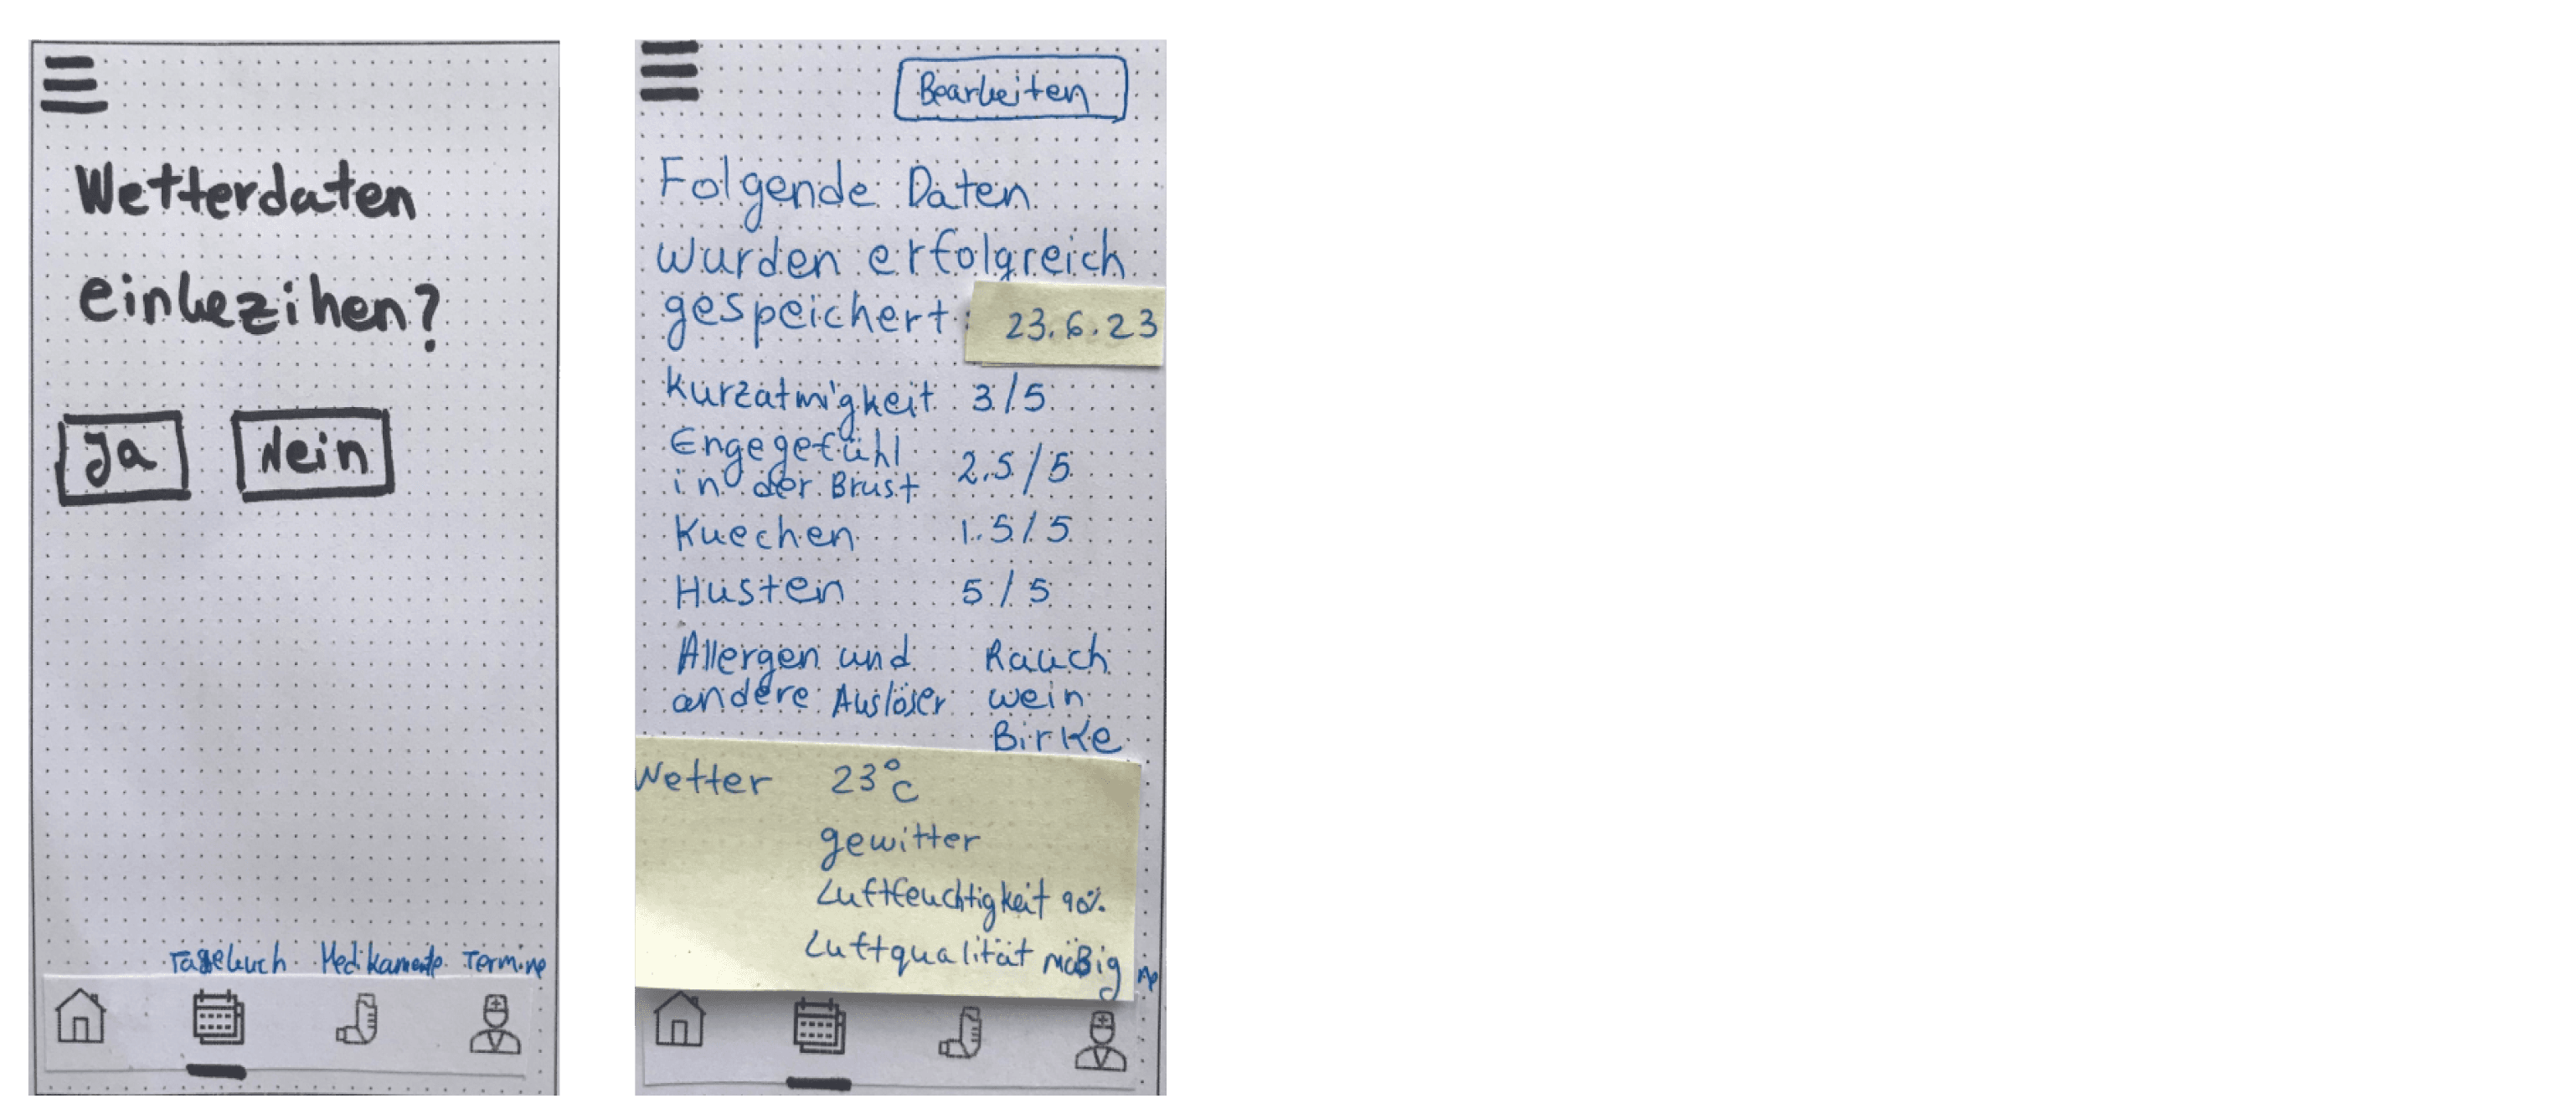 Wetterdaten
einbezihen?
Ja Nein
Tagebuch Medikamente Termine
Bearbeiten
Folgende Daten
wurden erfolgreich
gespeichert: 23.6.23
Kurzatmigkeit 3/5
Engegefühl
in der Brust 2.5/5
Kuechen 1.5/5
Husten 5/5
Allergen und Rauch
andere Auslöser wein
Birke
Wetter 23°C
gewitter
Luftfeuchtigkeit 90%
Luftqualität mäßig
ne